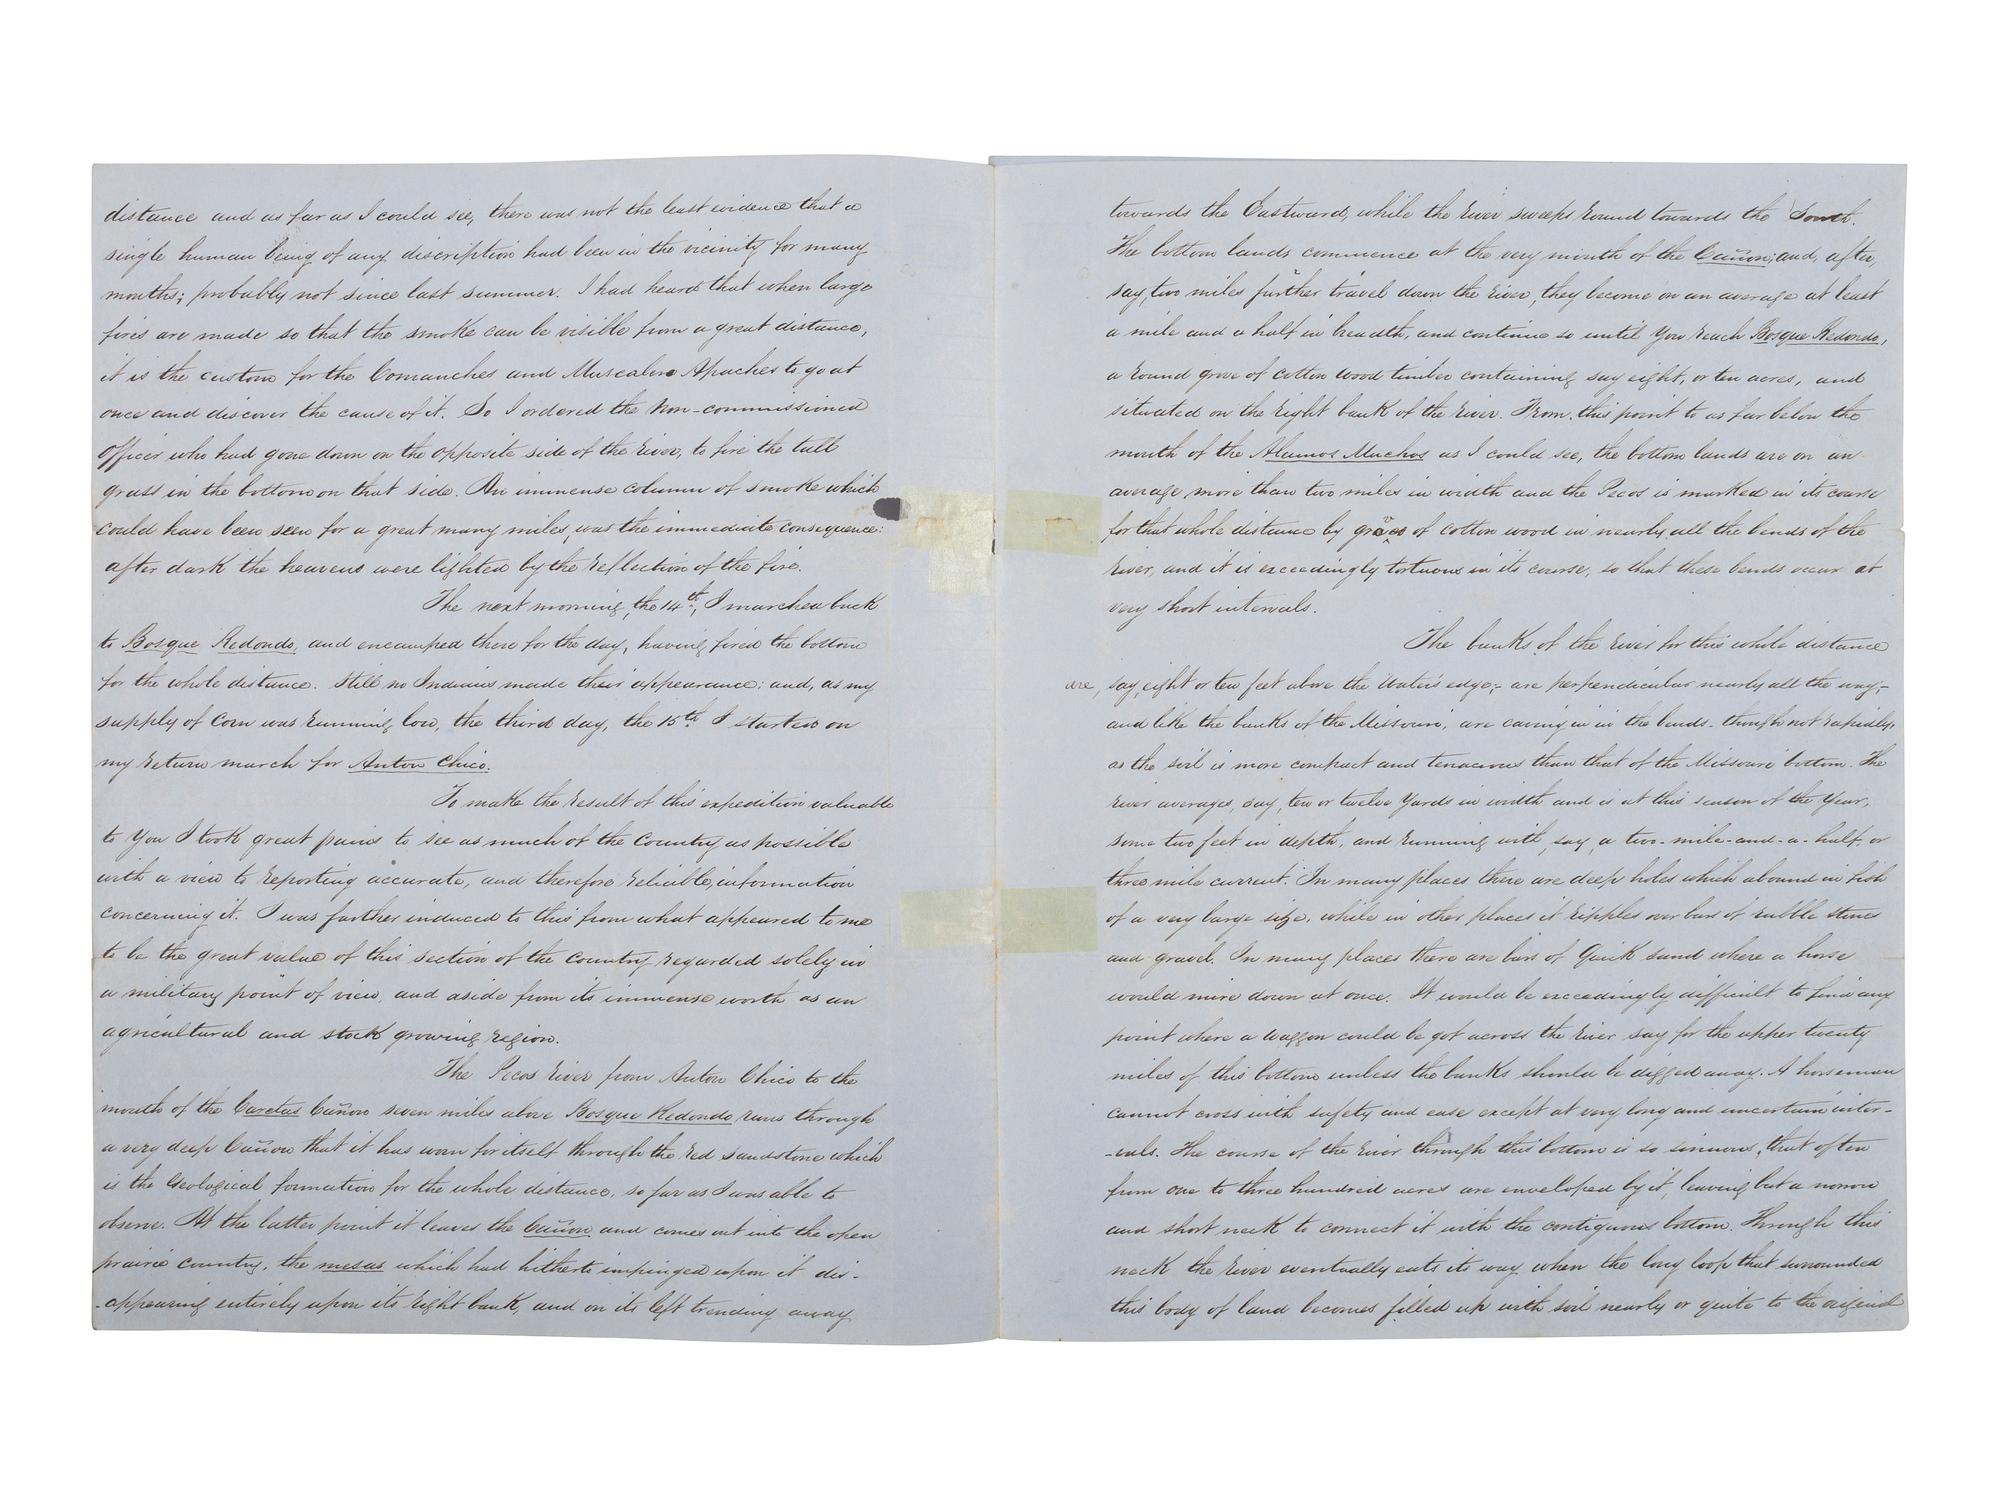 distance and as far as I could see, there was not the least evidence that a
single human being of any discription had been in the vicinity for many
months; probably not since last summer. I had heard that when large
fires are made so that the smoke can be visible from a great distance,
it is the custom for the Comanches and Muscalero Apaches to go at
once and discover the cause of it. So I ordered the Non-commissioned
Officer who had gone down on the opposite side of the river, to fire the tall
grass in the bottom on that side. An immense column of smoke which
could have been seen for a great many miles, was the immediate consequence:
after dark the heavens were lighted by the reflection of the fire.
The next morning, the 14th, I marched back
to Bosque Redondo, and encamped there for the day, having fired the bottom
for the whole distance. Still no Indians made their appearance; and, as my
supply of Corn was running low, the third day, the 15th I started on
my return march for Anton Chico.
To make the result of this expedition valuable
to You I took great pains to see as much of the Country as possible
with a view to reporting accurate, and therefore reliable, information
concerning it. I was further induced to this from what appeared to me
to be the great value of this section of the country regarded solely in
a military point of view, and aside from its immense worth as an
agricultural and stock growing region.
The Pecos river from Anton Chico to the
mouth of the Caretas Cañon seven miles above Bosque Redondo runs through
a very deep Cañon that it has worn for itself through the red sandstone which
is the Geological formation for the whole distance, so far as I was able to
observe. At the latter point it leaves the Cañon and comes out into the open
prairie country, the mesas which had hitherto impinged upon it dis-
-appearing entirely upon its right bank, and on its left trending away
towards the Eastward, while the river sweeps round towards the South.
The bottom lands commence at the very mouth of the Cañon; and, after,
say, two miles further travel down the river, they become on an average at least
a mile and a half in breadth, and continue so until You reach Bosque Redondo,
a round grove of cotton wood timber containing say eight, or ten acres, and
situated on the right bank of the river. From this point to as far below the
mouth of the Alamos Muchos as I could see, the bottom lands are on an
average more than two miles in width and the Pecos is marked in its course
for that whole distance by groves of cotton wood in nearly all the bends of the
river, and it is exceedingly tortuous in its course, so that these bends occur at
very short intervals.
The banks of the river for this whole distance
are, say, eight or ten feet above the Water's edge;- are perpendicular nearly all the way;-
and like the banks of the Missouri, are caving in in the bends - though not rapidly,
as the soil is more compact and tenacious than that of the Missouri bottom. The
river averages, say, ten or twelve Yards in width and is at this season of the Year,
some two feet in depth, and running with, say, a two-mile-and-a-half, or
three mile current. In many places there are deep holes which abound in fish
of a very large size, while in other places it ripples over bars of rubble stones
and gravel. In many places there are bars of Quick sand where a horse
would mire down at once. It would be exceedingly difficult to find any
point where a waggon could be got across the river say for the upper twenty
miles of this bottom unless the banks should be digged away. A horseman
cannot cross with safety and ease except at very long and uncertain inter-
-vals. The course of the river through this bottom is so sinuous, that often
from one to three hundred acres are enveloped by it, leaving but a narrow
and short neck to connect it with the contiguous bottom. Through this
neck the river eventually eats its way when the long loop that surrounded
this body of land becomes filled up with soil nearly or quite to the original